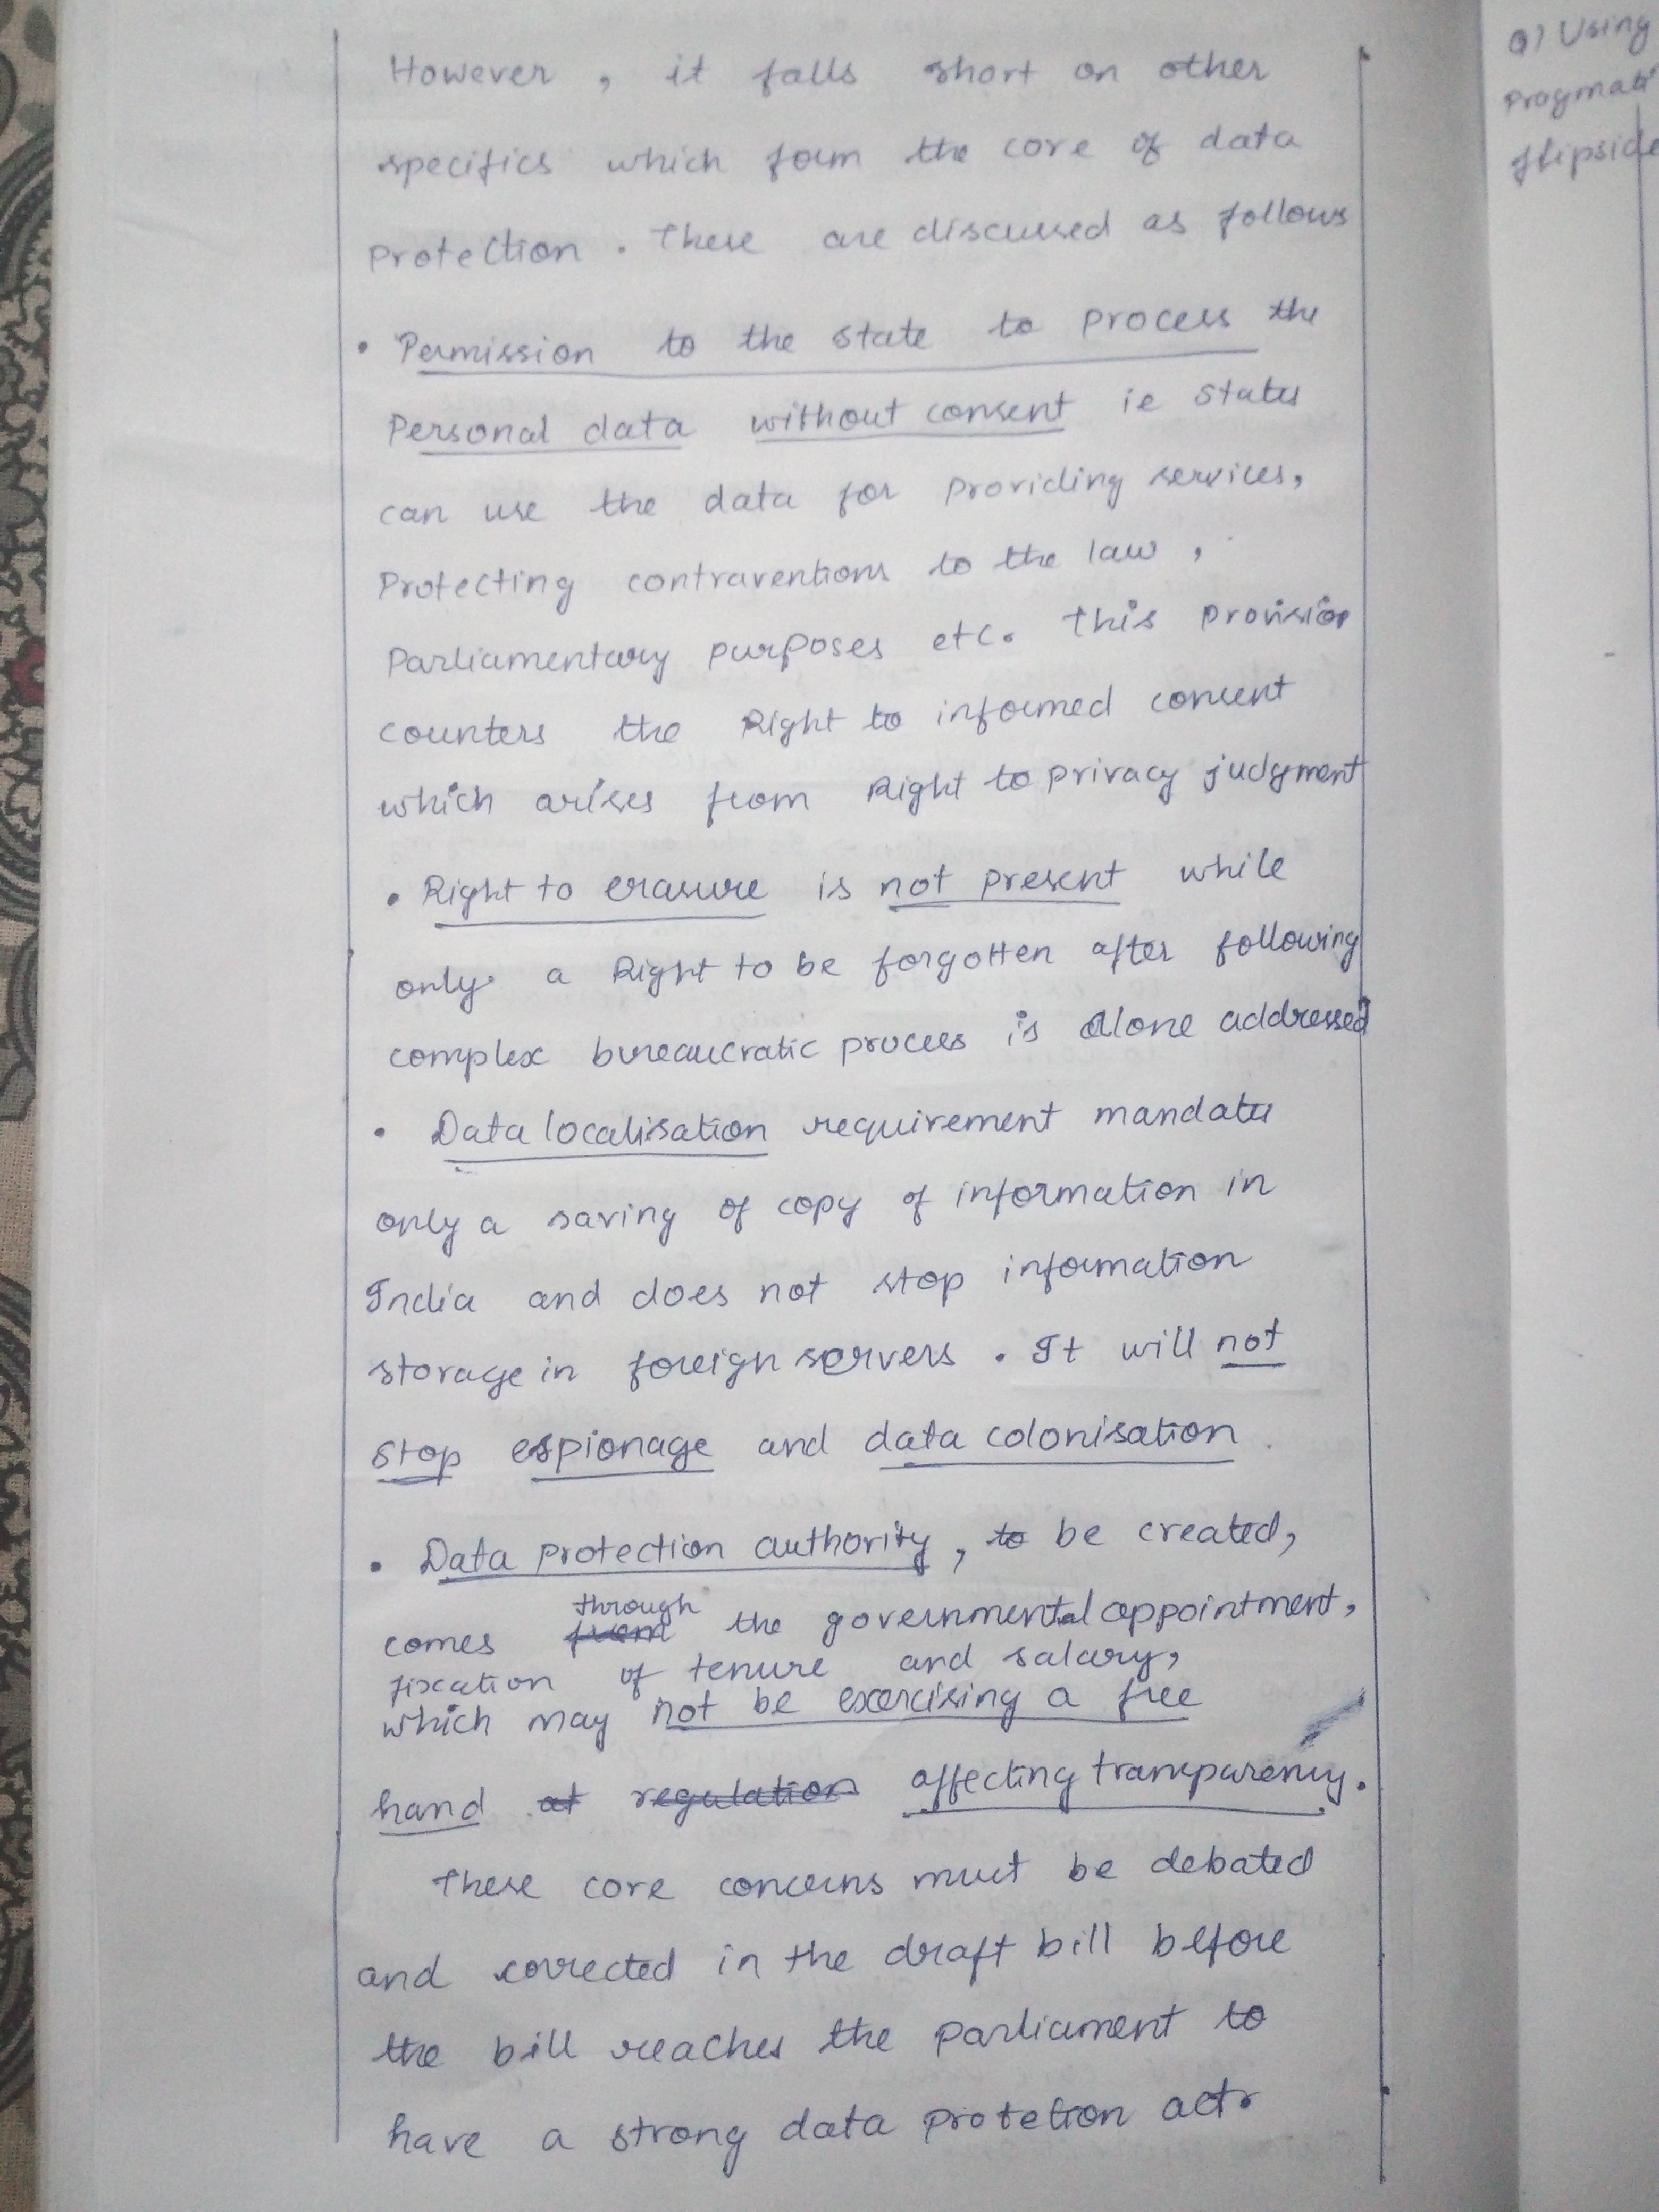 However, it falls short on other
specifics which form the core of data
protection. These are discussed as follows
• Permission to the state to process the
Personal data without consent ie states
can use the data for providing services,
Protecting contraventions to the law,
Parliamentary purposes etc. This provision
counters the Right to informed consent
which arises from Right to privacy judgment
• Right to erasure is not present while
only a Right to be forgotten after following
complex bureaucratic process is alone addressed
• Data localisation requirement mandates
only a saving of copy of information in
India and does not stop information
storage in foreign servers. It will not
stop espionage and data colonisation.
• Data protection authority, to be created,
comes through the governmental appointment,
fixation of tenure and salary,
which may not be exercising a free
hand at regulation affecting transparency.
These core concerns must be debated
and corrected in the draft bill before
the bill reaches the parliament to
have a strong data protetion act.
Q) Using
Pragmati
flipside